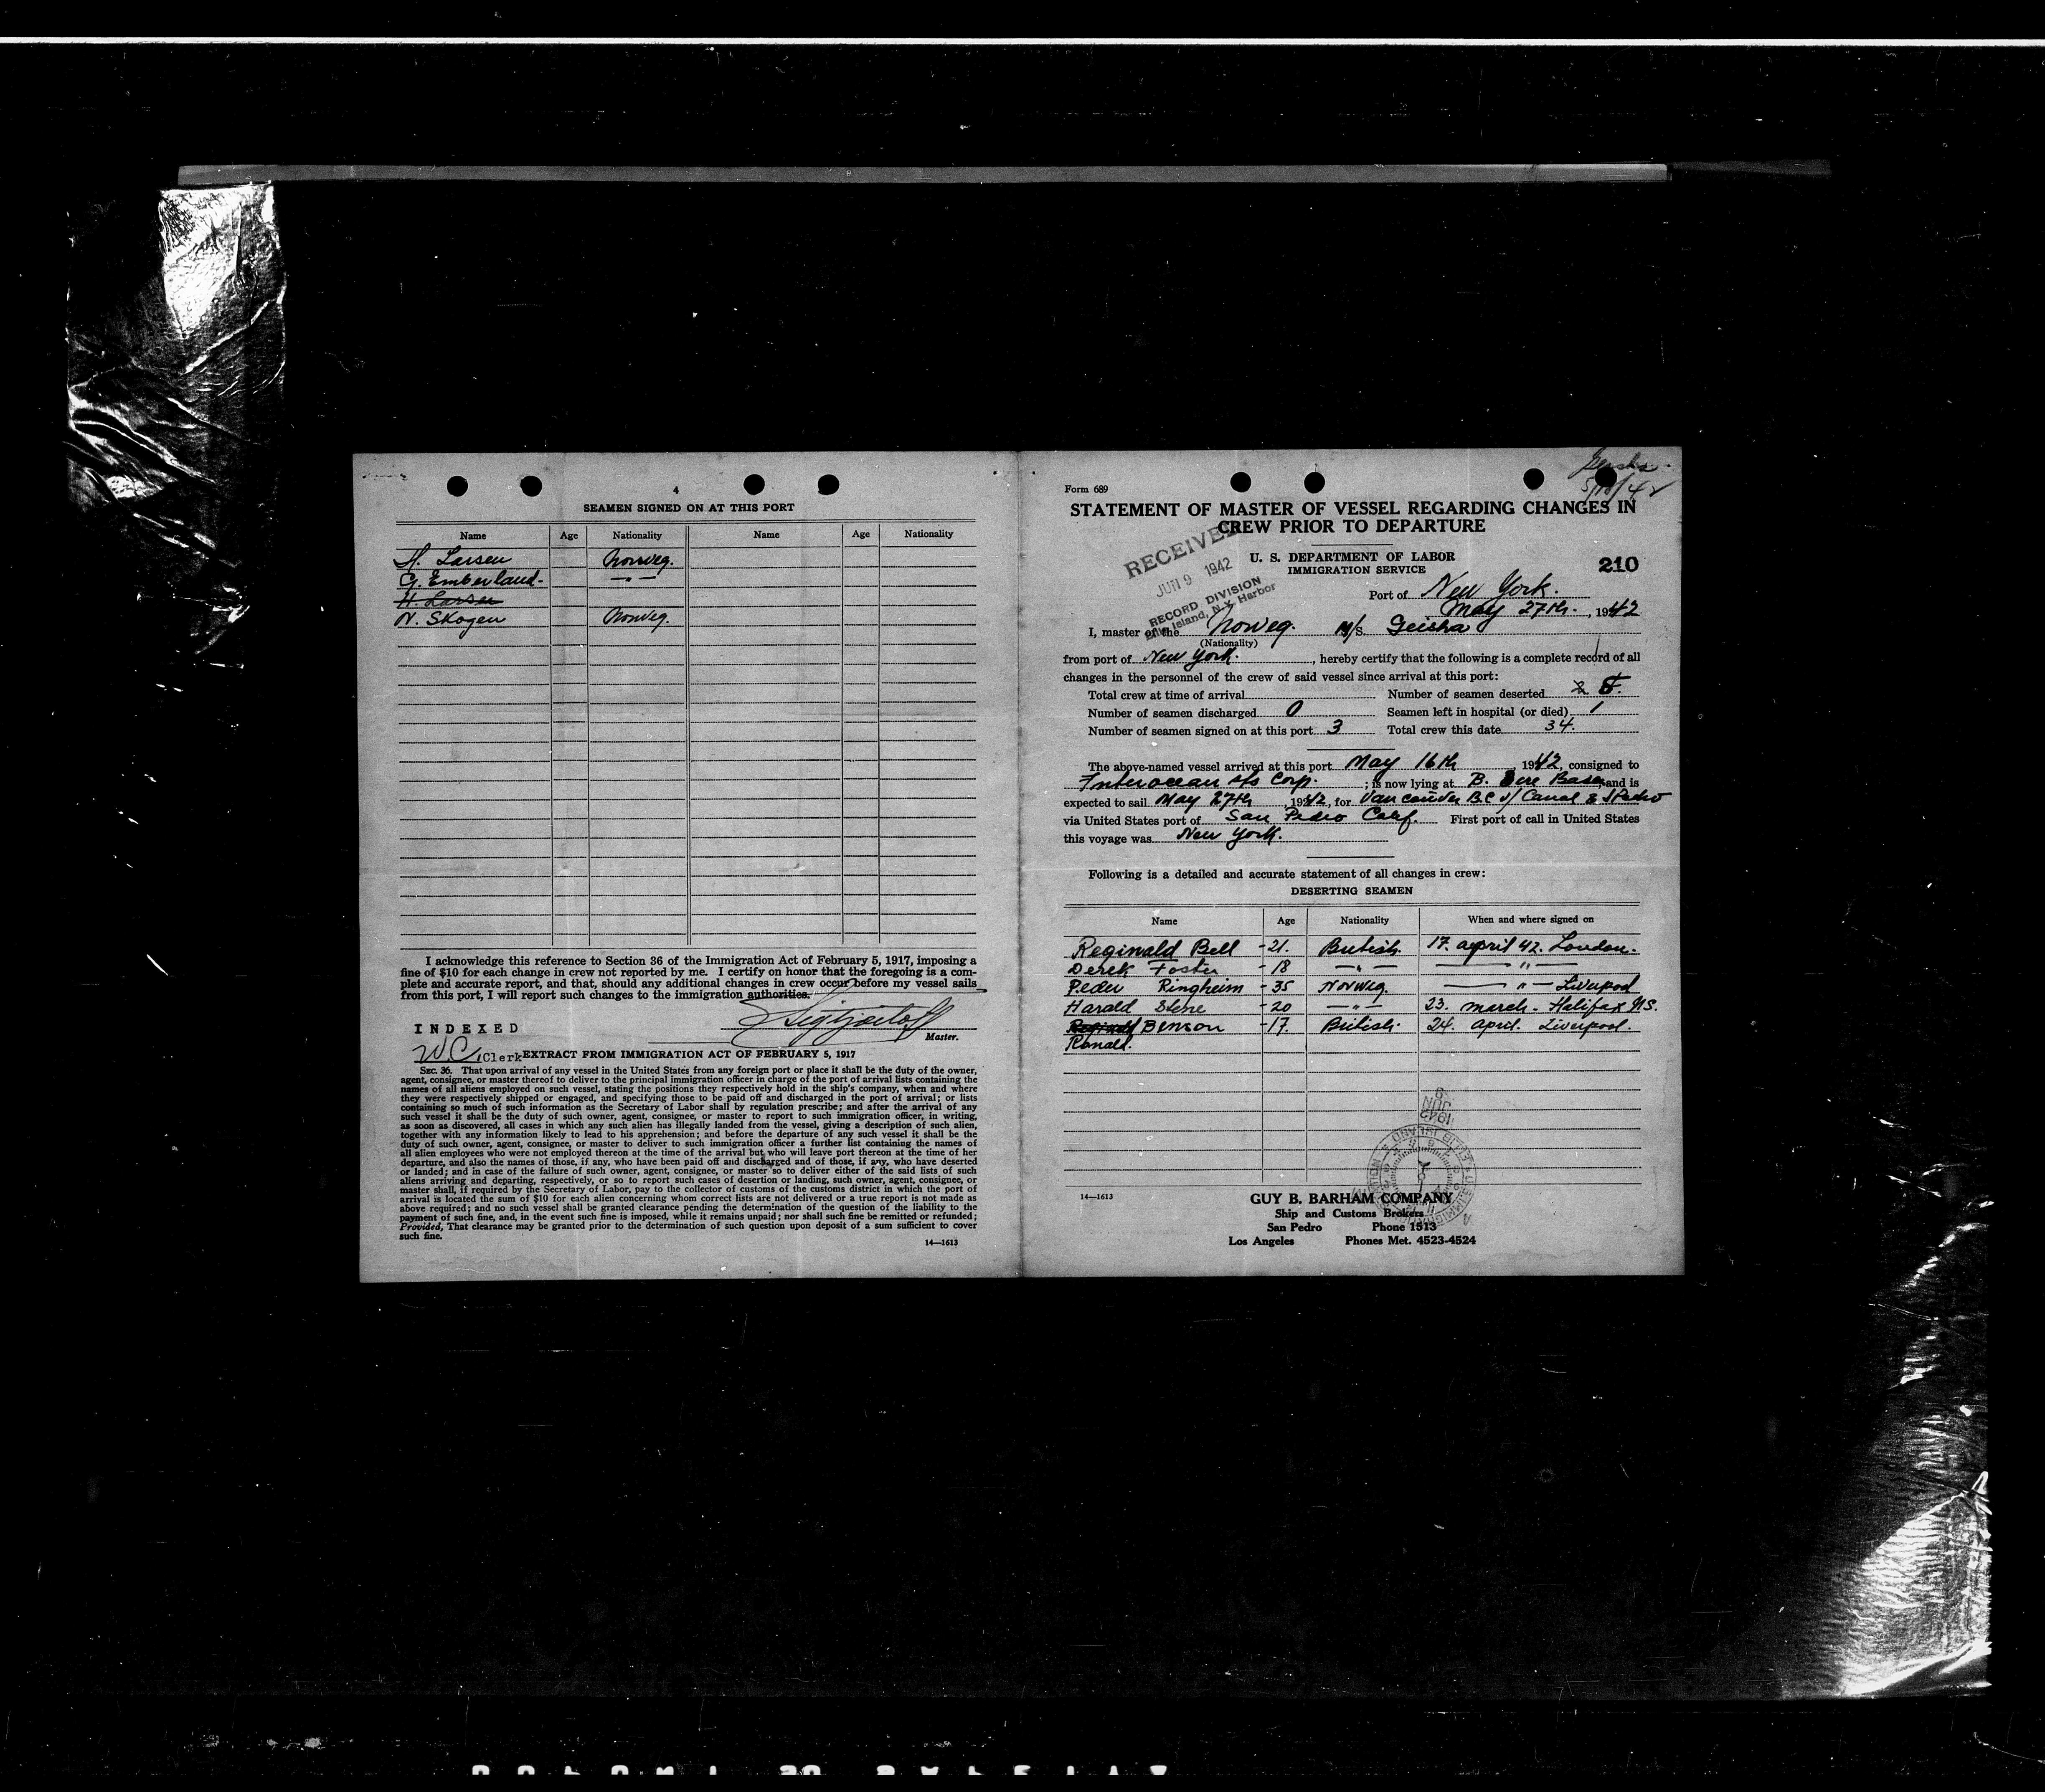 4
SEAMEN SIGNED ON AT THIS PORT
Name Age Nationality Name Age Nationality
H. Larsen Norweg.
G. Emberland. — " —
H. Larsen
N. Skogen Norweg.
I acknowledge this reference to Section 36 of the Immigration Act of February 5, 1917, imposing a
fine of $10 for each change in crew not reported by me. I certify on honor that the foregoing is a com-
plete and accurate report, and that, should any additional changes in crew occur before my vessel sails
from this port, I will report such changes to the immigration authorities.
INDEXED
Master.
W.C. Clerk
EXTRACT FROM IMMIGRATION ACT OF FEBRUARY 5, 1917
SEC. 36. That upon arrival of any vessel in the United States from any foreign port or place it shall be the duty of the owner,
agent, consignee, or master thereof to deliver to the principal immigration officer in charge of the port of arrival lists containing the
names of all aliens employed on such vessel, stating the positions they respectively hold in the ship's company, when and where
they were respectively shipped or engaged, and specifying those to be paid off and discharged in the port of arrival; or lists
containing so much of such information as the Secretary of Labor shall by regulation prescribe; and after the arrival of any
such vessel it shall be the duty of such owner, agent, consignee, or master to report to such immigration officer, in writing,
as soon as discovered, all cases in which any such alien has illegally landed from the vessel, giving a description of such alien,
together with any information likely to lead to his apprehension; and before the departure of any such vessel it shall be the
duty of such owner, agent, consignee, or master to deliver to such immigration officer a further list containing the names of
all alien employees who were not employed thereon at the time of the arrival but who will leave port thereon at the time of her
departure, and also the names of those, if any, who have been paid off and discharged and of those, if any, who have deserted
or landed; and in case of the failure of such owner, agent, consignee, or master so to deliver either of the said lists of such
aliens arriving and departing, respectively, or so to report such cases of desertion or landing, such owner, agent, consignee, or
master shall, if required by the Secretary of Labor, pay to the collector of customs of the customs district in which the port of
arrival is located the sum of $10 for each alien concerning whom correct lists are not delivered or a true report is not made as
above required; and no such vessel shall be granted clearance pending the determination of the question of the liability to the
payment of such fine, and, in the event such fine is imposed, while it remains unpaid; nor shall such fine be remitted or refunded;
Provided, That clearance may be granted prior to the determination of such question upon deposit of a sum sufficient to cover
such fine.
14—1613
Geisha
Form 689
STATEMENT OF MASTER OF VESSEL REGARDING CHANGES IN
CREW PRIOR TO DEPARTURE
RECEIVED
JUN 9 1942
RECORD DIVISION
Ellis Island, N.Y. Harbor
U. S. DEPARTMENT OF LABOR
IMMIGRATION SERVICE
210
Port of New York.
May 27th. , 1942
I, master of the Norweg. M/S. Geisha
(Nationality)
from port of New York. , hereby certify that the following is a complete record of all
changes in the personnel of the crew of said vessel since arrival at this port:
Total crew at time of arrival Number of seamen deserted 5.
Number of seamen discharged 0 Seamen left in hospital (or died) 1
Number of seamen signed on at this port 3 Total crew this date 34.
The above-named vessel arrived at this port May 16th , 1942, consigned to
Interocean s/s Corp. ; is now lying at B. and is
expected to sail May 27th , 1942, for Vancouver B.C v/ Canal & S Pedro
via United States port of San Pedro Calif. First port of call in United States
this voyage was New York.
Following is a detailed and accurate statement of all changes in crew:
DESERTING SEAMEN
Name Age Nationality When and where signed on
Reginald Bell -21. British. 17. april 42. London.
Derek Foster -18 — " — — " —
Peder Ringheim -35 Norweg. — " — Liverpool
Harald Stene -20 — " — 23. march - Halifax N.S.
Reginald Benson -17. British. 24. april. Liverpool.
Ronald.
JUN 9 1942
14—1613
GUY B. BARHAM COMPANY
Ship and Customs Brokers
San Pedro Phone 1513
Los Angeles Phones Met. 4523-4524